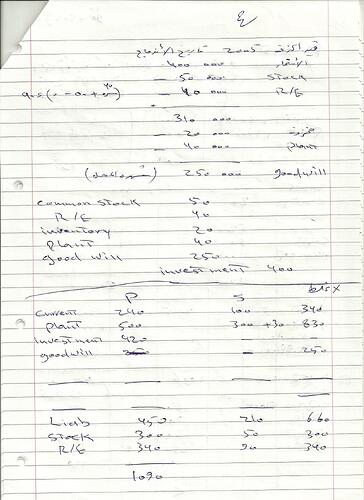 ع
قيد اكتوبر 2005 تاريخ الاندماج
400 000 الاستثمار
— 50 000 stock
— 40 000 R/E
310 000
— 20 000 مخزون
— 40 000 plant
250 000 goodwill
Common stock 50
R/E 40
inventory 20
plant 40
good will 250
investment 400
P S
Current 240 100 340
plant 500 300 +30 830
Investment 420 —
goodwill — 250
Liab 450 210 660
Stock 300 50 300
R/E 340 90 340
1090